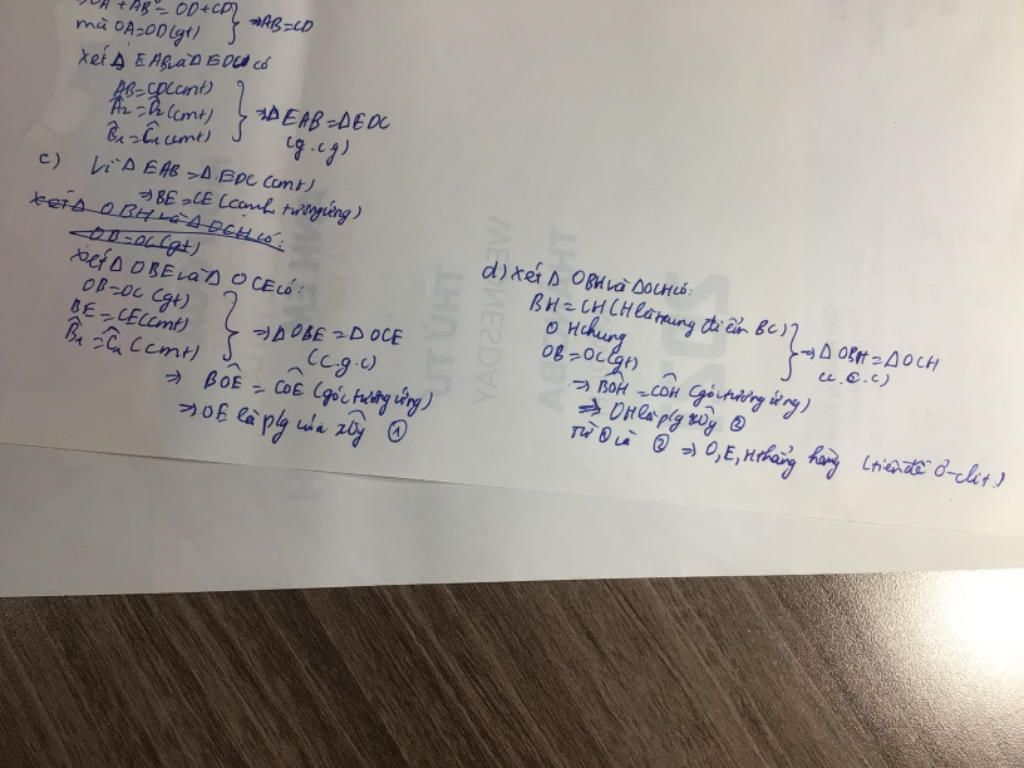 OA + AB = OD + CD
mà OA = OD (gt) } ⇒ AB = CD
Xét Δ EAB và Δ EDC có
AB = CD (cmt)
Â2 = D̂2 (cmt)
B̂1 = Ĉ1 (cmt)
} ⇒ Δ EAB = Δ EDC
(g.c.g)
c) Vì Δ EAB = Δ EDC (cmt)
⇒ BE = CE (cạnh tương ứng)
Xét Δ OBH và Δ OCH có:
OB = OC (gt)
Xét Δ OBE và Δ OCE có:
OB = OC (gt)
BE = CE (cmt)
B̂1 = Ĉ1 (cmt)
} ⇒ Δ OBE = Δ OCE
(c.g.c)
⇒ BÔE = CÔE (góc tương ứng)
⇒ OE là p/g của xÔy ①
d) Xét Δ OBH và Δ OCH có:
BH = CH (H là trung đi của BC)
OH chung
OB = OC (gt)
} ⇒ Δ OBH = Δ OCH
(c.c.c)
⇒ BÔH = CÔH (góc tương ứng)
⇒ OH là p/g xÔy ②
Từ ① và ② ⇒ O, E, H thẳng hàng (tiên đề Ơ-clit)
WEDNESDAY
THỨ TƯ